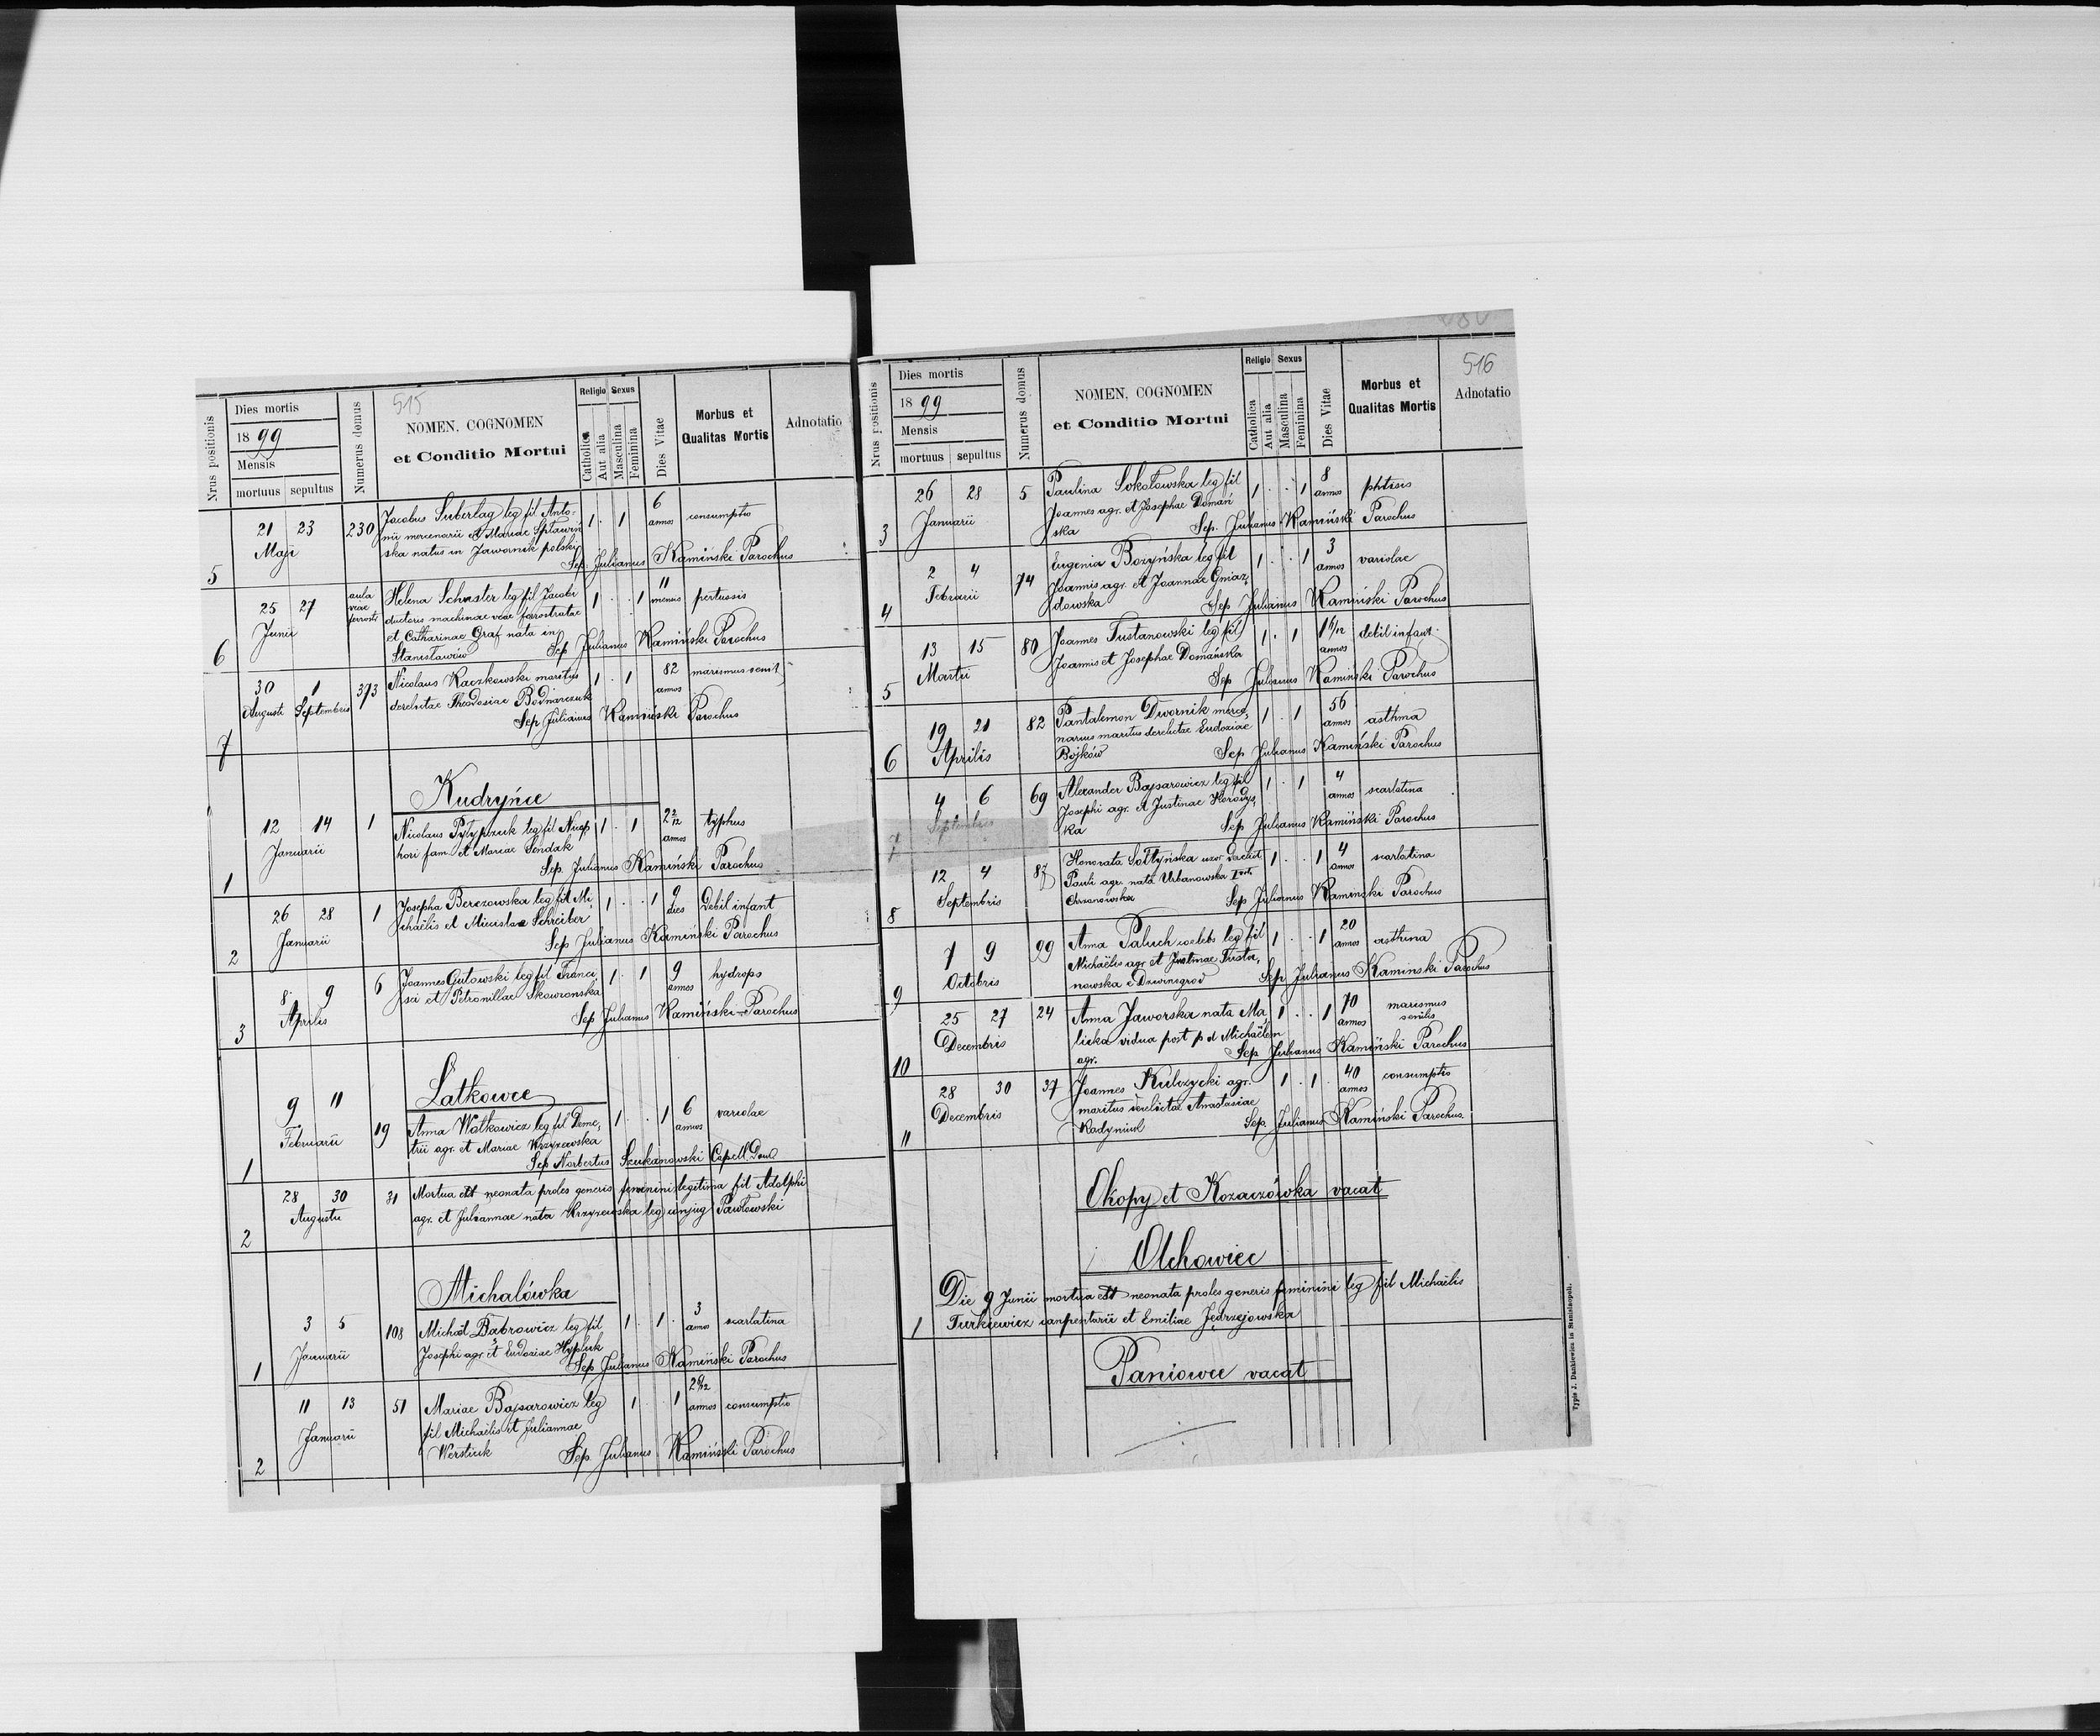 515
Nrus positionis
Dies mortis
1899
Mensis
mortuus sepultus
Numerus domus
NOMEN, COGNOMEN
et Conditio Mortui
Religio Sexus
Catholica
Aut alia
Masculina
Feminina
Dies Vitae
Morbus et
Qualitas Mortis
Adnotatio
5 21 23 Maji 230 Jacobus Suberlag leg fil Anto-
nii mercenarii et Mariae
ska natus in Jawornik polski 1 1 6 annos consumptio
Sep. Julianus Kamiński Parochus
6 25 27 Junii aula viae ferrostr Helena Schuster leg fil Jacobi
ductoris machinae viae ferrostratae
et Catharinae Graf nata in
Stanisławów 1 1 11 menses pertussis
Sep Julianus Kamiński Parochus
7 30 1 Augusti Septembris 373 Nicolaus Kaczkowski maritus
derelictae Theodosiae Bodnarczuk 1 1 82 annos
Sep Julianus Kamiński Parochus
Kudryńce
1 12 14 Januarii 1 Nicolaus leg fil Nicep
hori fam. et Mariae Sendak 1 1 2 2/12 annos typhus
Sep. Julianus Kamiński Parochus
2 26 28 Januarii 1 Josepha Berezowska leg fil Mi
chaëlis et Schreiber 1 1 9 dies Debil infant
Sep Julianus Kamiński Parochus
3 8 9 Aprilis 6 Joannes Gutowski leg fil Franci
sci et Petronillae Skowronska 1 1 9 annos hydrops
Sep Julianus Kamiński Parochus
Latkowce
1 9 11 Februarii 19 Anna Wołkowicz leg fil Deme
trii agr. et Mariae Krzyżewska 1 1 6 annos variolae
Sep Norbertus Szukanowski Capell.
2 28 30 Augusti 31 Mortua est neonata proles generis feminini legitima fil Adolphi
agr. et Juliannae nata Krzyżewska leg conjug Pawłowski
Michalówka
1 3 5 Januarii 108 Michaël Dąbrowicz leg fil
Josephi agr. et Eudoxiae 1 1 3 annos scarlatina
Sep Julianus Kamiński Parochus
2 11 13 Januarii 51 Mariae Bajsarowicz leg
fil Michaëlis et Juliannae
Werstiuk 1 1 annos consumptio
Sep. Julianus Kamiński Parochus
516
Nrus positionis
Dies mortis
1899
Mensis
mortuus sepultus
Numerus domus
NOMEN, COGNOMEN
et Conditio Mortui
Religio Sexus
Catholica
Aut alia
Masculina
Feminina
Dies Vitae
Morbus et
Qualitas Mortis
Adnotatio
3 26 28 Januarii 5 Paulina Sokołowska leg fil
Joannes agr. et Josephae Domań
ska 1 1 8 annos phtisis
Sep. Julianus Kamiński Parochus
4 2 4 Februarii 74 Eugenia Bożyńska leg fil
Joannis agr. et Joannae Gniaz,
dowska 1 1 3 annos variolae
Sep Julianus Kamiński Parochus
5 13 15 Martii 80 Joannes Tustanowski leg fil
Joannis et Josephae Domańska 1 1 annos debil infant
Sep Julianus Kamiński Parochus
6 19 21 Aprilis 82 Pantalemon Dwornik merce,
narius maritus derelictae Eudoxiae
Bojków 1 1 56 annos asthma
Sep Julianus Kamiński Parochus
7 4 6 Septembris 69 Alexander Bajsarowicz leg fil
Josephi agr. et Justinae Horodys,
ka 1 1 4 annos scarlatina
Sep Julianus Kamiński Parochus
8 12 4 Septembris 87 Honorata Sołtyńska uxor derelict
Pauli agr. nata Urbanowska
Chrzanowska 1 1 4 annos scarlatina
Sep Julianus Kamiński Parochus
9 7 9 Octobris 99 Anna Paluch coelebs leg fil
Michaëlis agr et Justinae Tusta,
nowska e Dzwinogrod 1 1 20 annos asthma
Sep Julianus Kamiński Parochus
10 25 27 Decembris 24 Anna Jaworska nata Ma,
licka vidua post p d Michaëlem
agr. 1 1 70 annos marismus senilis
Sep Julianus Kamiński Parochus
11 28 30 Decembris 37 Joannes Kulczycki agr.
maritus derelictae Anastasiae
Kadyniuk 1 1 40 annos consumptio
Sep. Julianus Kamiński Parochus
Okopy et Kozaczówka vacat
Olchowiec
Die 9 Junii mortua est neonata proles generis feminini leg fil Michaëlis
1 Turkiewicz carpentarii et Emiliae Jędrzejowska
Paniowce vacat
Typis J. Dankiewicz in Stanislaopoli.